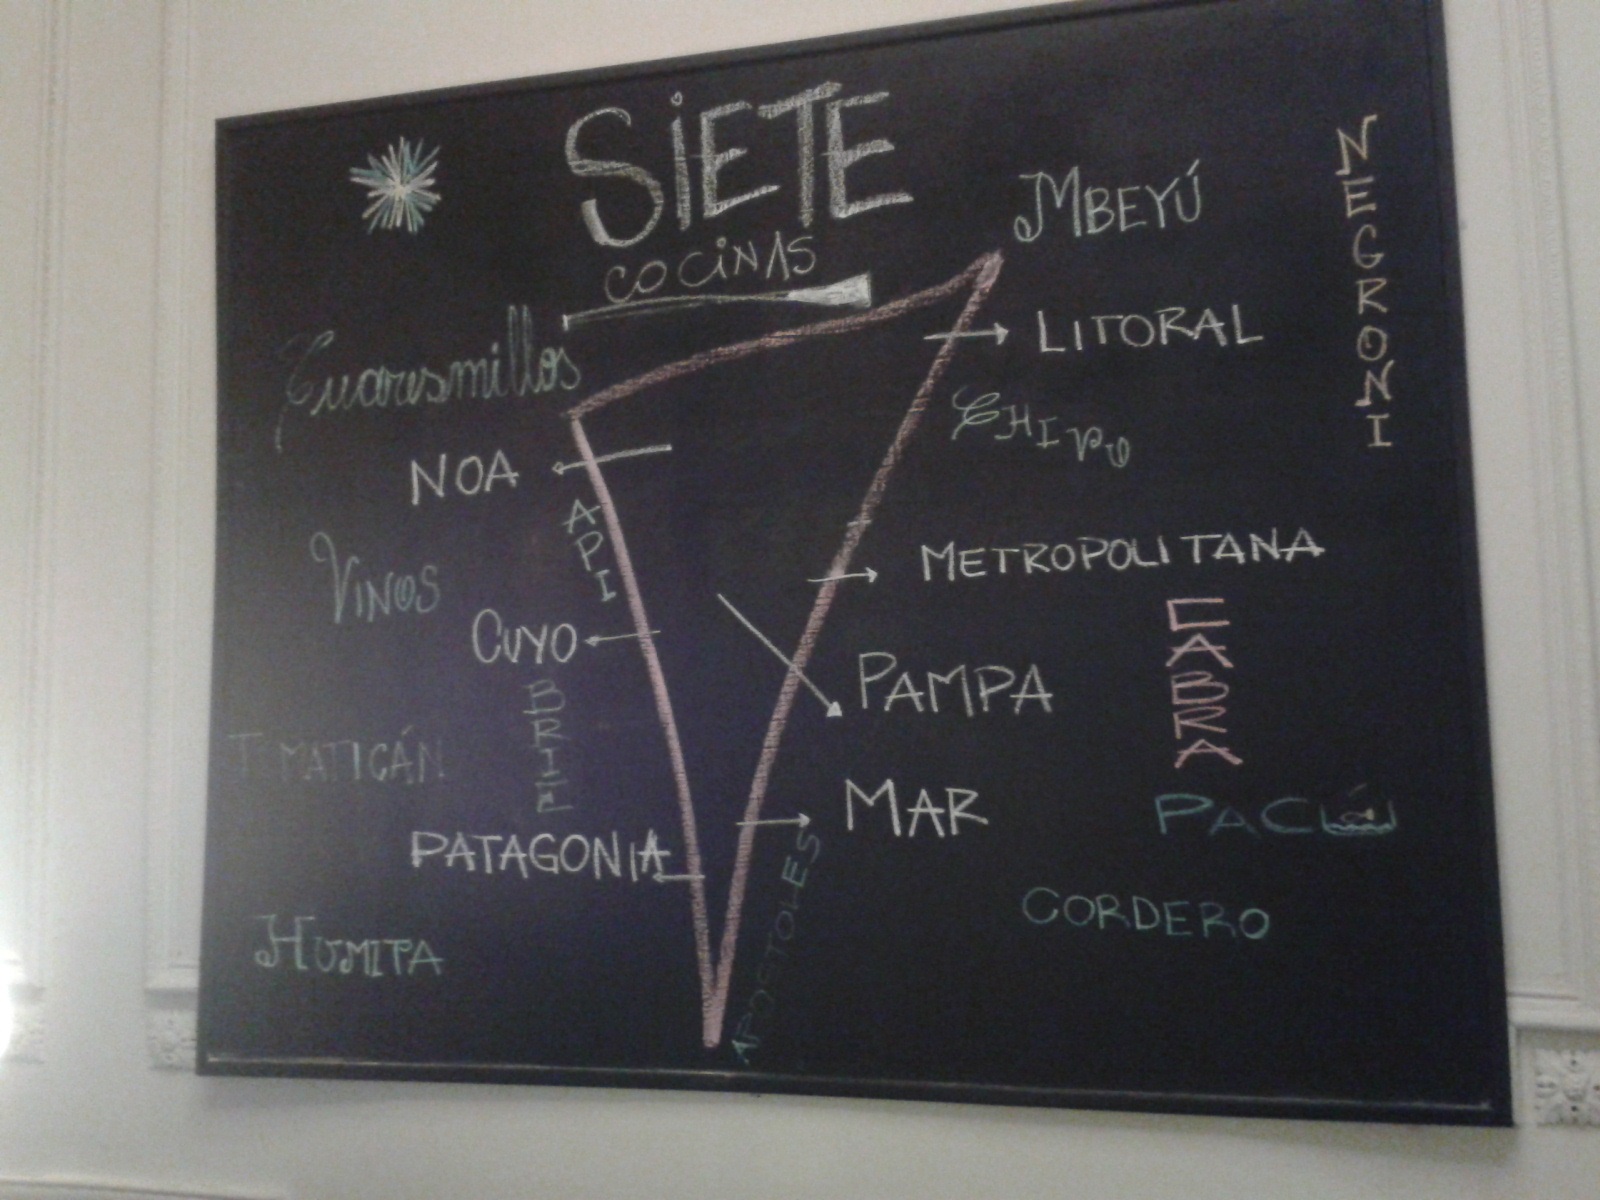 SIETE
COCINAS
MBEYÚ
NEGRONI
Cuaresmillos
LITORAL
CHIPU
NOA
API
VINOS
METROPOLITANA
CUYO
PAMPA
CABRA
BRIE
TOMATICÁN
PATAGONIA
MAR
PACÚ
APOSTOLES
CORDERO
HUMITA